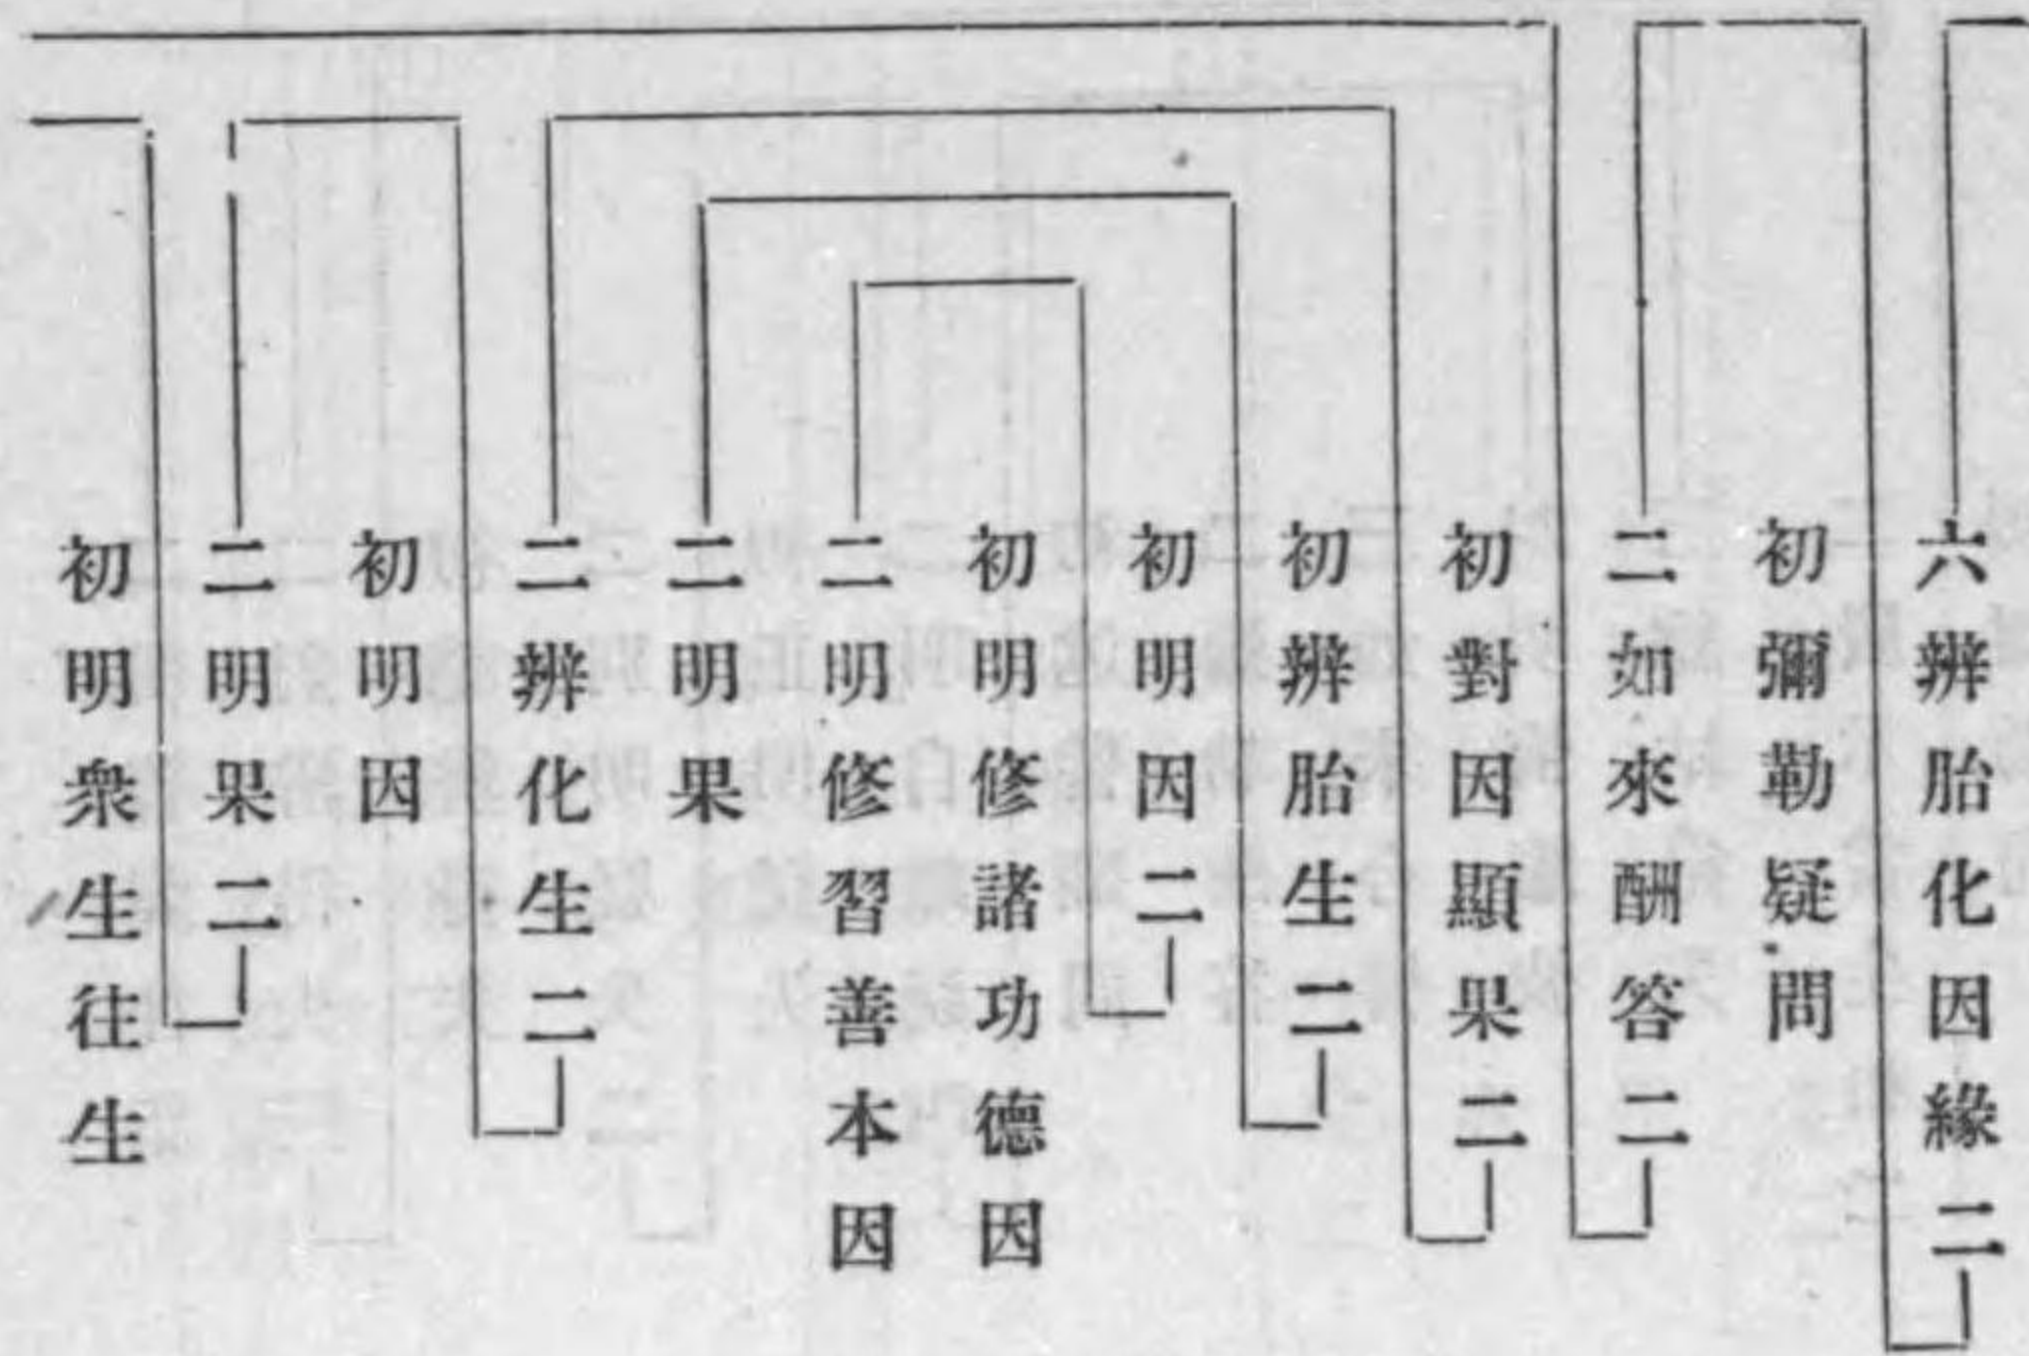 六辨胎化因緣二
初彌勒疑問
二如來酬答二
初對因顯果二
初辨胎生二
初明因二
初明修諸功德因
二明修習善本因
二明果
二辨化生二
初明因
二明果二
初明衆生往生